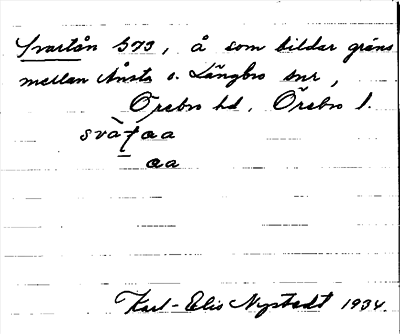 Svartån G73, å som bildar gräns
mellan Ånsta o. Längbro snr,
Örebro hd. Örebro l.
svàṭaa
aa
Karl-Elis Nystedt 1934.